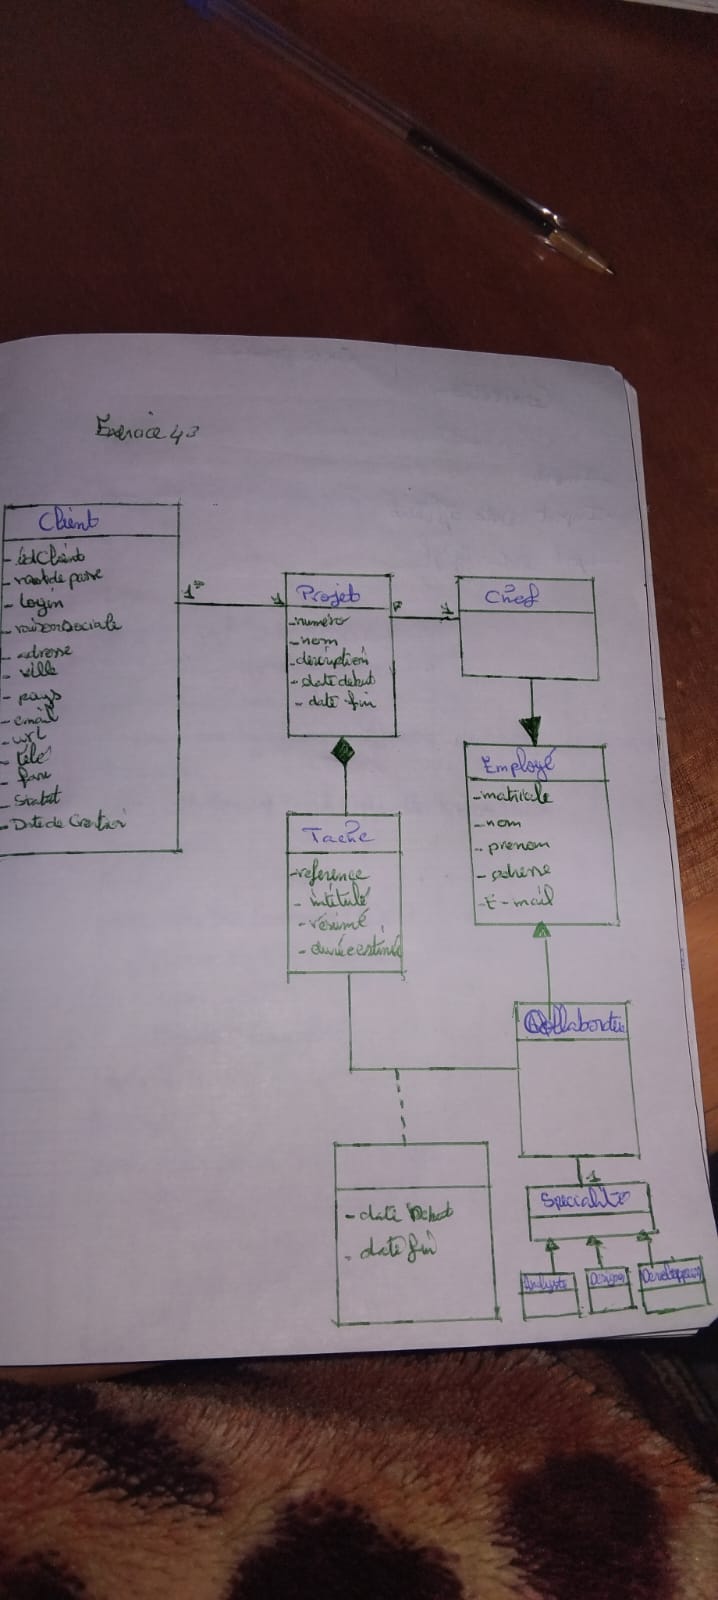 Exercice 43
Client
- idClient
- mot de passe
- login
- raison sociale
- adresse
- ville
- pays
- email
- url
- télé
- fax
- Statut
- Date de Creation
1
1
Projet
- numéro
- nom
- description
- date debut
- date fin
1
Chef
Employé
- matricule
- nom
- prenom
- adresse
- E-mail
Tache
- reference
- intitulé
- résumé
- durée estimée
- date Debut
- date fin
1
Specialité
Analyste
Designer